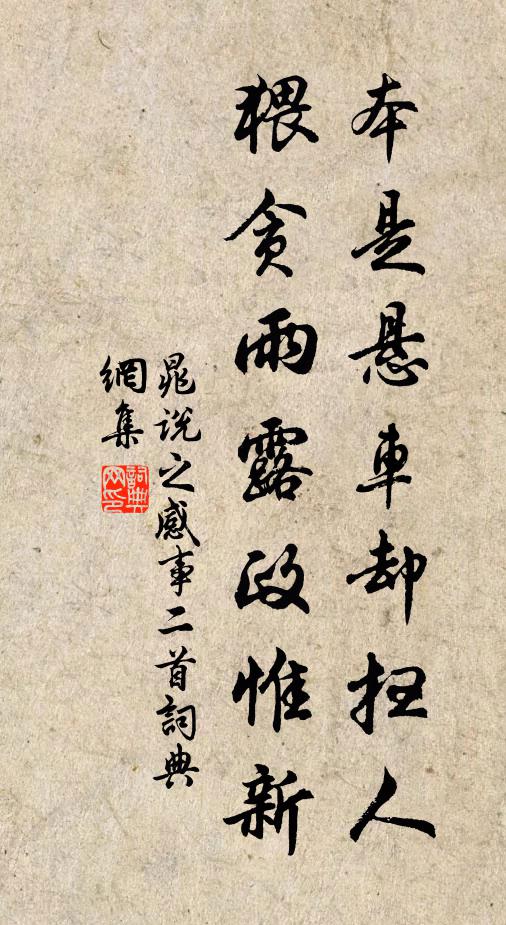 本是悬車却抂人
猥貪雨露政惟新
晁說之感事二首詞典
網集
詞典網印